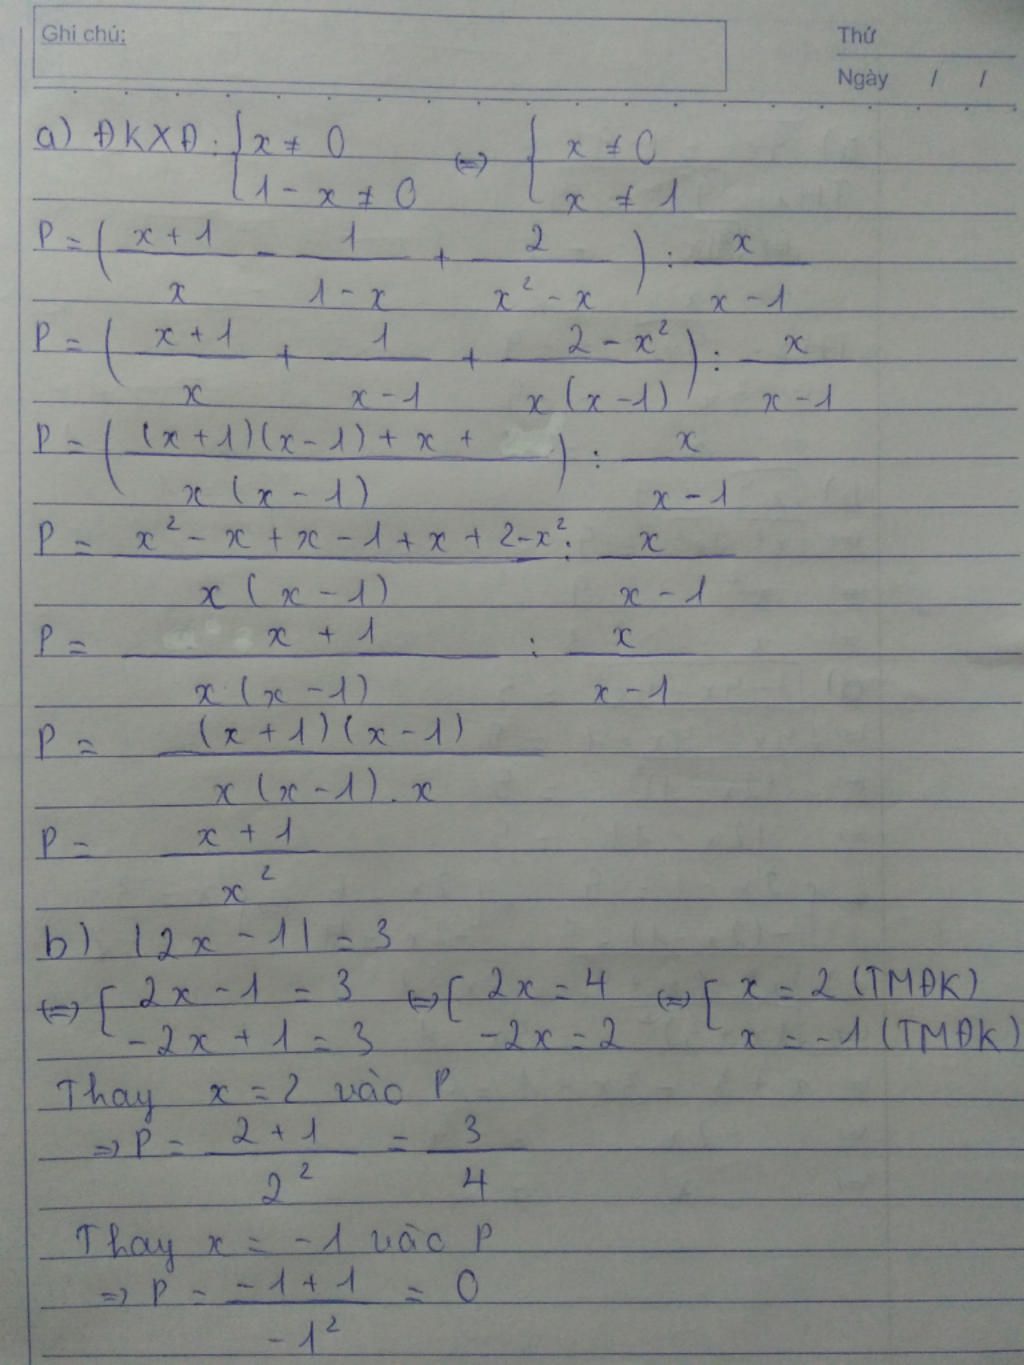 Ghi chú:
Thứ
Ngày / /
a) ĐKXĐ: { x ≠ 0 ; 1 - x ≠ 0 (=) { x ≠ 0 ; x ≠ 1
P = ( (x + 1)/x - 1/(1 - x) + 2/(x² - x) ) : x/(x - 1)
P = ( (x + 1)/x + 1/(x - 1) + (2 - x²)/(x(x - 1)) ) : x/(x - 1)
P = ( ((x + 1)(x - 1) + x +)/(x(x - 1)) ) : x/(x - 1)
P = (x² - x + x - 1 + x + 2 - x²)/(x(x - 1)) : x/(x - 1)
P = (x + 1)/(x(x - 1)) : x/(x - 1)
P = ((x + 1)(x - 1))/(x(x - 1).x)
P = (x + 1)/x²
b) |2x - 1| = 3
(=) [ 2x - 1 = 3 ; -2x + 1 = 3 (=) [ 2x = 4 ; -2x = 2 (=) [ x = 2 (TMĐK) ; x = -1 (TMĐK)
Thay x = 2 vào P
=> P = (2 + 1)/2² = 3/4
Thay x = -1 vào P
=> P = (-1 + 1)/-1² = 0